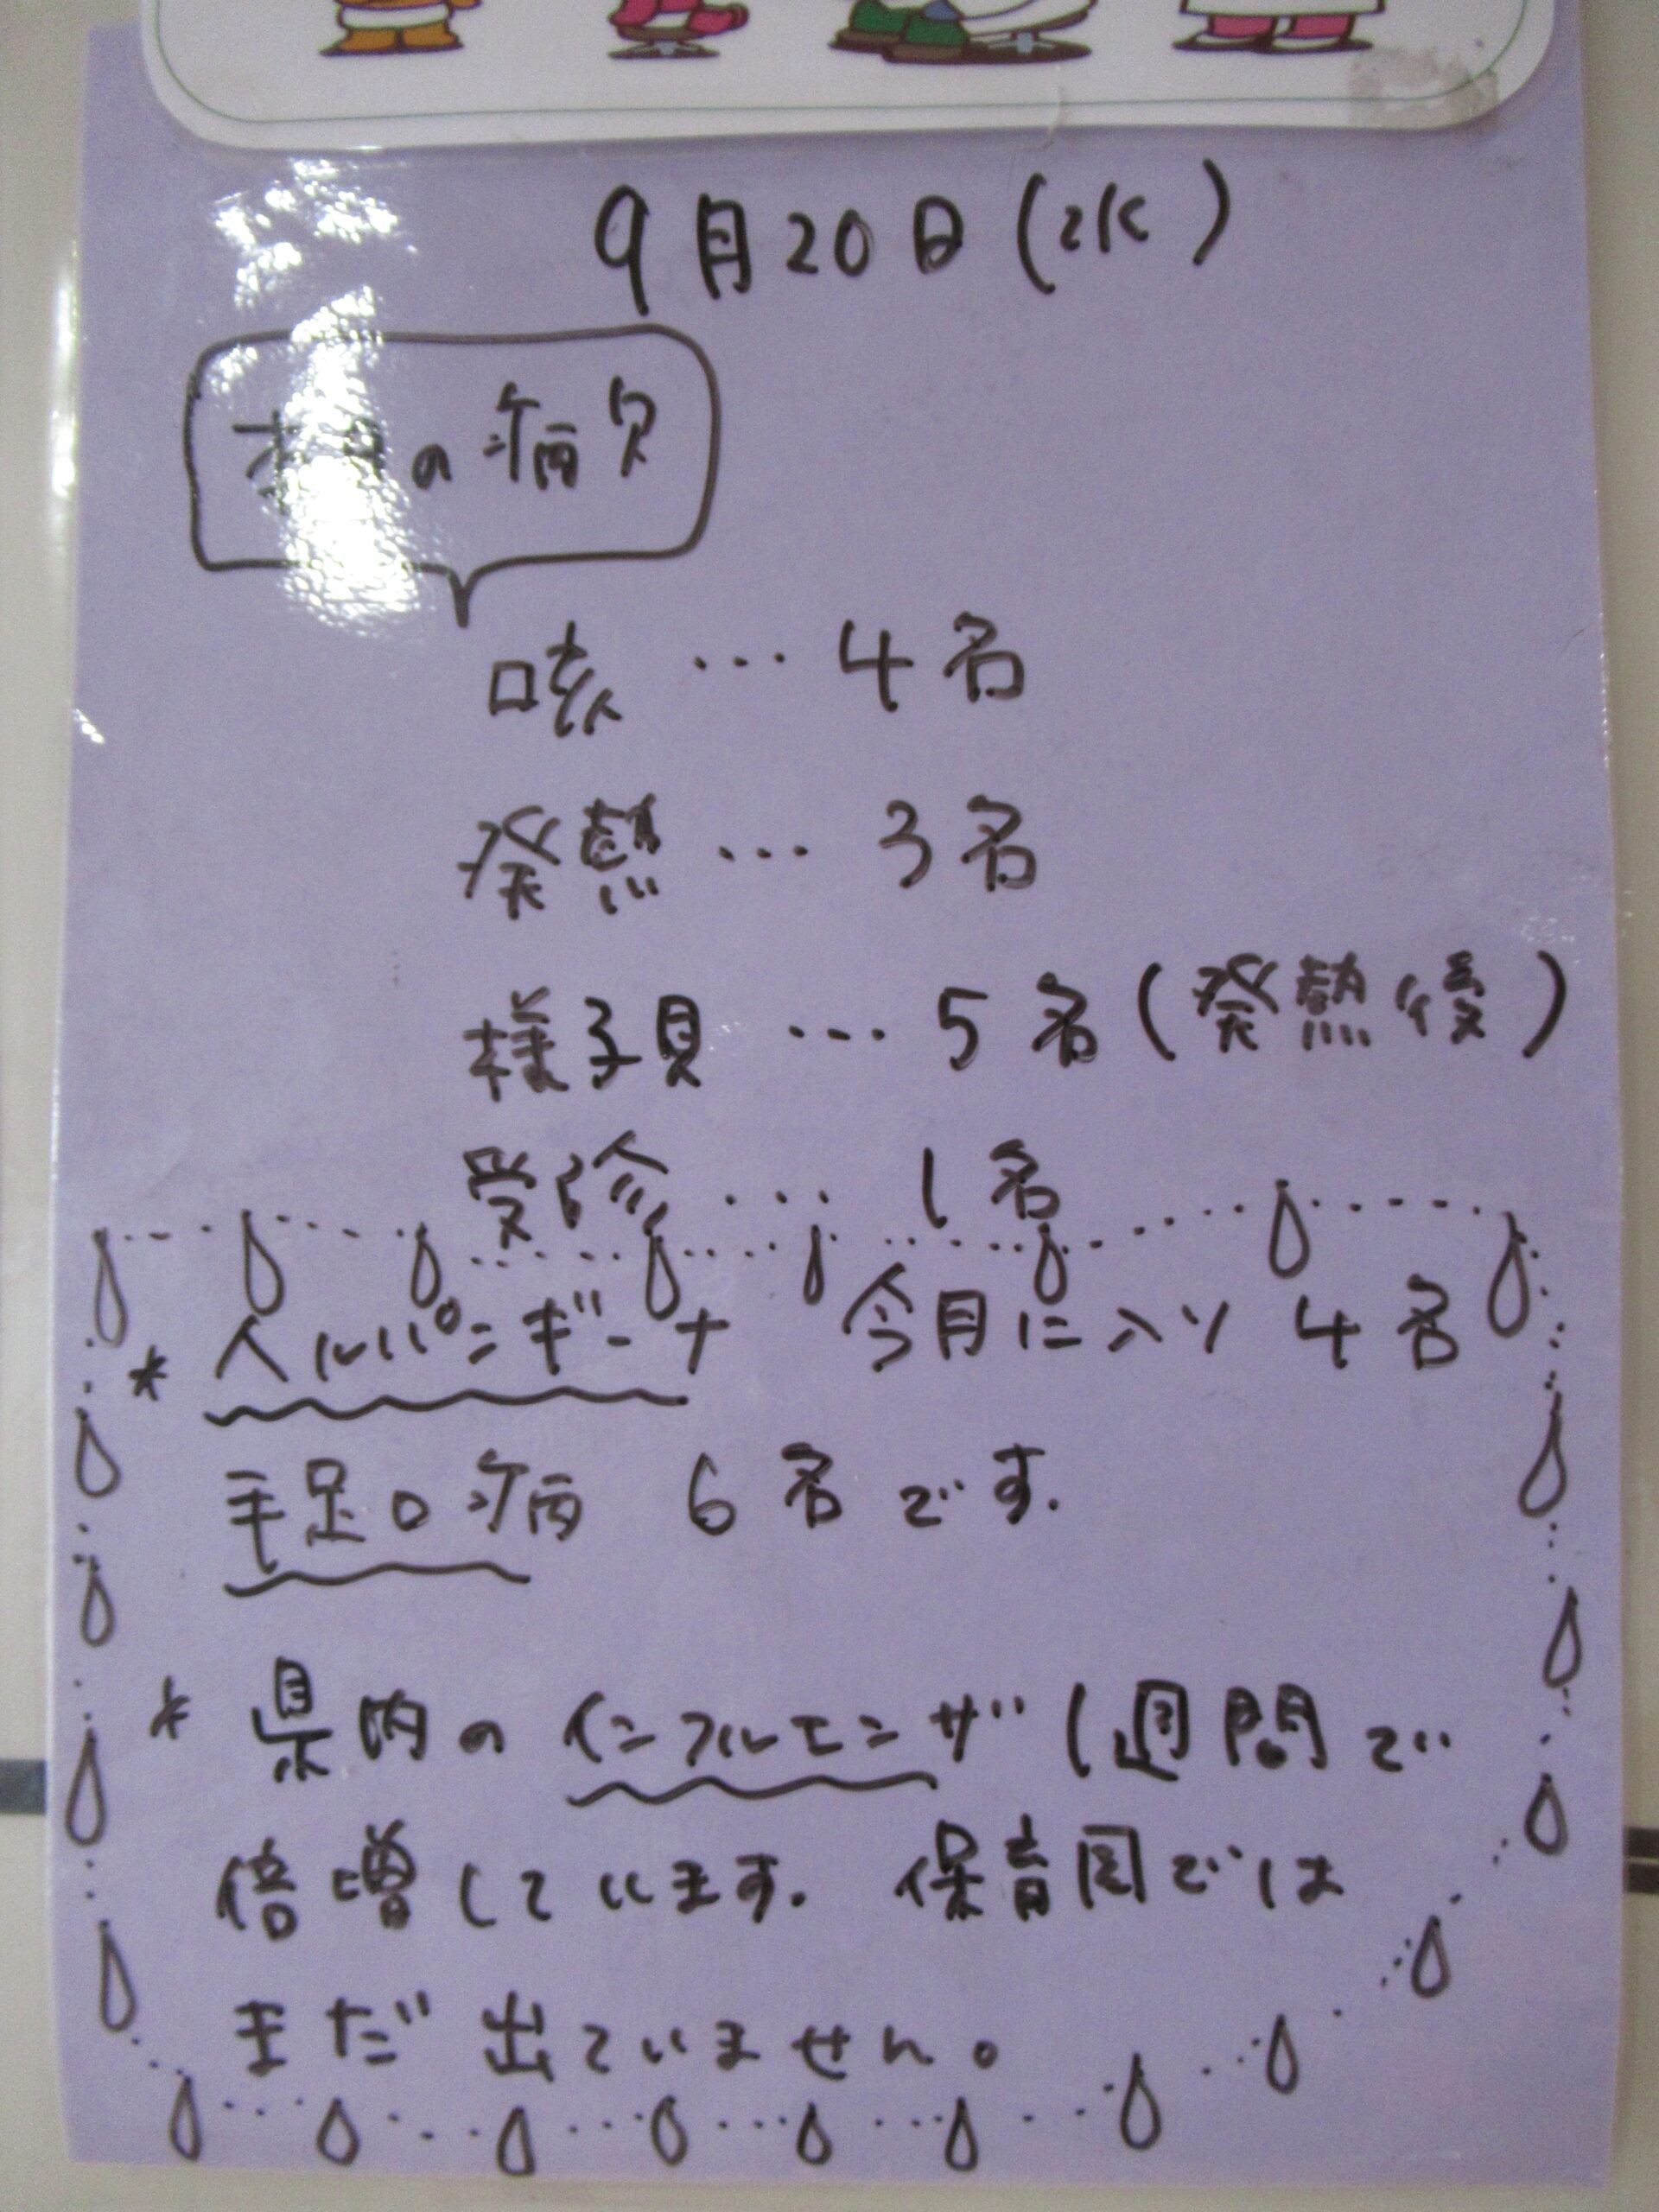 9月20日(水)
本日の病欠
咳…4名
発熱…3名
様子見…5名(発熱後)
受診…1名
* ヘルパンギーナ 今月に入り 4名
手足口病 6名です.
* 県内のインフルエンザ1週間で
倍増しています. 保育園では
まだ出ていません。